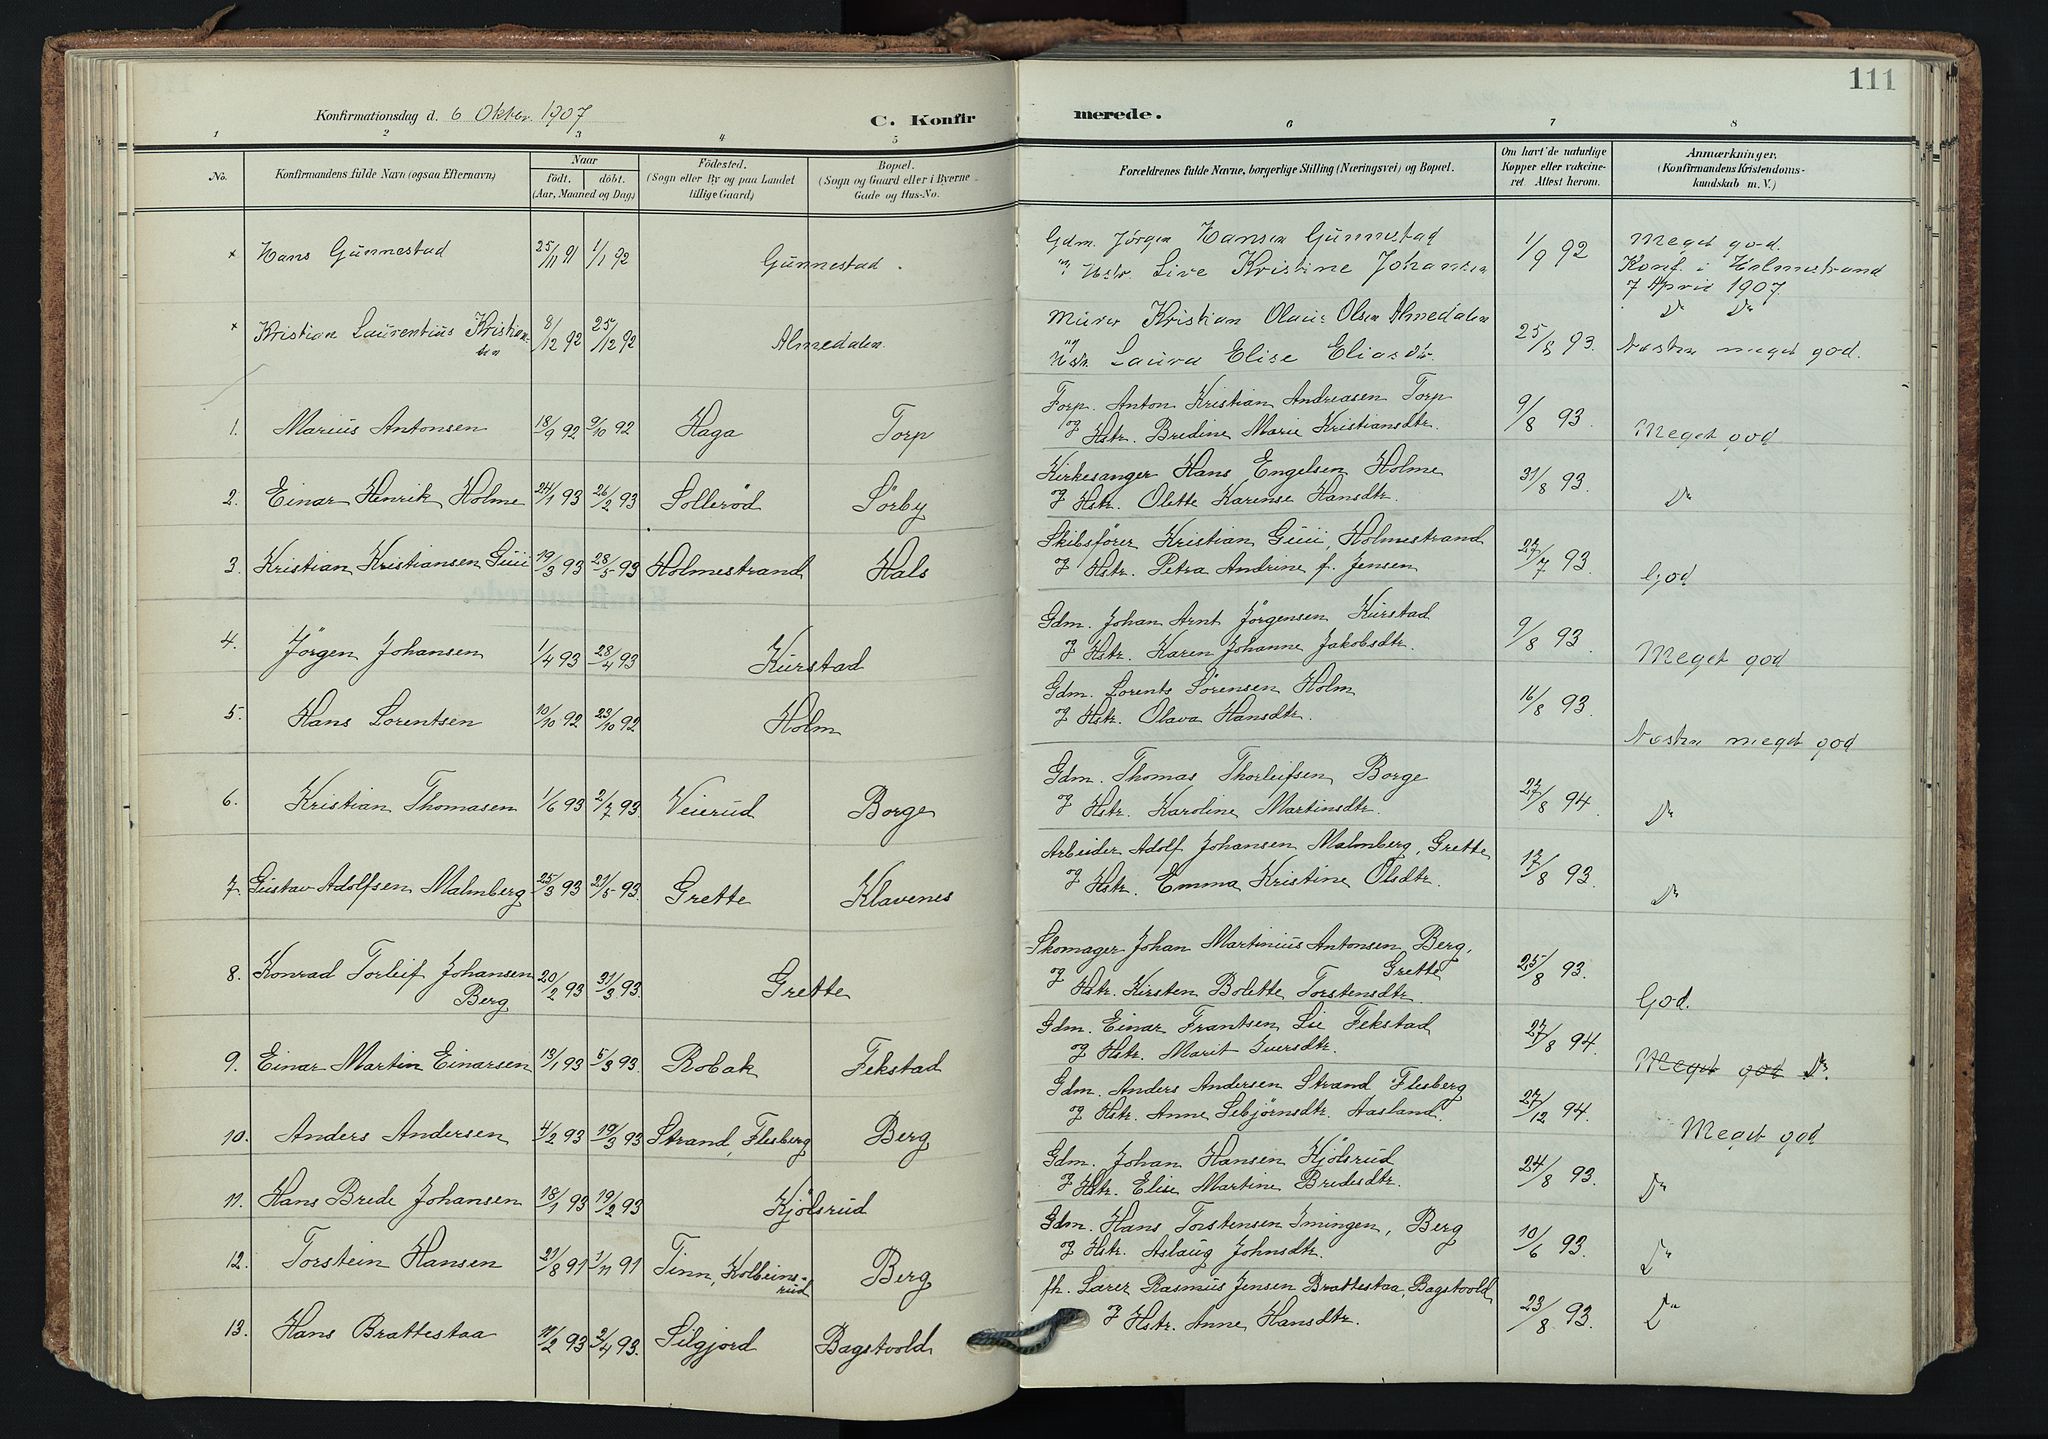 111
Konfirmationsdag d. 6 Oktbr. 1907
C. Konfirmerede.
1 2 3 4 5 6 7 8
No.
Konfirmandens fulde Navn (ogsaa Efternavn)
Naar
födt. döbt.
(Aar, Maaned og Dag)
Födested.
(Sogn eller By og paa Landet
tillige Gaard)
Bopæl.
(Sogn og Gaard eller i Byerne
Gade og Hus-No.
Forældrenes fulde Navne, borgerlige Stilling (Næringsvei) og Bopæl.
Om havt de naturlige
Kopper eller vakcine-
ret. Attest herom.
Anmærkninger.
(Konfirmandens Kristendoms-
kundskab m. V.)
× Hans Gunnestad 25/11 91 1/1 92 Gunnestad.
Gdm. Jørgen Hansen Gunnestad
og Hstr. Live Kristine Johansen
1/9 92
Meget god.
Konf. i Holmestrand
7 April 1907.
× Kristian Laurentius Kristian-
sen 8/12 92 25/12 92 Almedalen
Murer Kristian Olaus Olsen Almedalen
og
Hstr. Laura Elise Eliasdtr.
25/8 93.
Do Do
Næsten meget god.
1. Marius Antonsen 18/9 92 9/10 92 Haga Torp
Forp. Anton Kristian Andreasen Torp
og Hstr. Bredine Marie Kristiansdtr.
9/8 93.
Meget god
2. Einar Henrik Holme 24/1 93 26/2 93 Solleröd Sörby
Kirkesanger Hans Engelsen Holme
og Hstr. Olette Karense Hansdtr.
31/8 93.
Do
3. Kristian Kristiansen Guii 19/3 93 28/5 93 Holmestrand Hals
Skibsförer Kristian Guii, Holmestrand
og Hstr. Petra Andrine f. Jensen
27/7 93.
God
4. Jörgen Johansen 1/4 93 28/4 93 Kurstad
Gdm. Johan Arnt Jörgensen Kurstad
og Hstr. Karen Johanne Jakobsdtr.
9/8 93.
Meget god
5. Hans Lorentsen 10/10 92 23/10 92 Holm
Gdm. Lorents Sörensen Holm
og Hstr. Olava Hansdtr.
16/8 93.
Næsten meget god
6. Kristian Thomasen 1/6 93 2/7 93. Veierud Borge
Gdm. Thomas Thorleifsen Borge
og Hstr. Karoline Martinsdtr.
27/8 94.
Do
7. Gustav Adolfsen Malmberg 25/3 93 21/5 93. Grette Klavenes
Arbeider Adolf Johansen Malmberg, Grette
og Hstr. Emma Kristine Olsdtr.
17/8 93.
Do
8. Konrad Torleif Johansen
Berg 20/2 93 31/3 93. Grette
Skomager Johan Martinius Antonsen Berg,
Grette
og Hstr. Kirsten Bolette Torstensdtr.
25/8 93.
God.
9. Einar Martin Einarsen 13/1 93 5/3 93. Robak Fekstad
Gdm. Einar Frantsen Lie Fekstad
og Hstr. Marit Iversdtr.
27/8 94.
Meget god Do.
10. Anders Andersen 4/2 93 19/3 93 Strand, Flesberg Berg
Gdm. Anders Andersen Strand Flesberg
og Hstr. Anne Sebjörnsdtr. Aasland.
27/12 94.
Meget god
11. Hans Brede Johansen 18/1 93 19/2 93 Kjölsrud
Gdm. Johan Hansen Kjölsrud
og Hstr. Elise Martine Bredesdtr.
24/8 93.
Do
12. Torstein Hansen 21/8 91 1/11 91 Tinn, Kolbeins-
rud Berg
Gdm. Hans Torstensen Imingen, Berg
og Hstr. Aslaug Johnsdtr.
10/6 93.
Do
13. Hans Brattestaa 11/2 93 2/4 93. Silgjord Bagstvold
fh. Lærer Rasmus Jensen Brattestaa, Bagstvold
og Hstr. Anne Hansdtr.
23/8 93.
Do